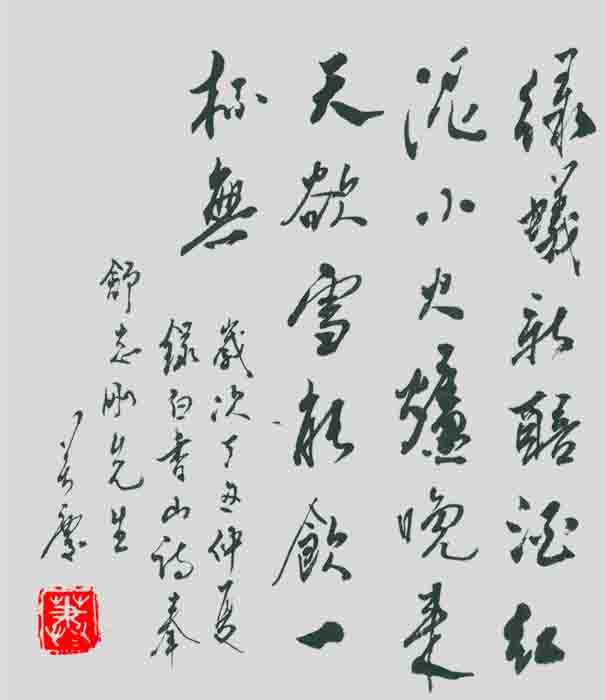 綠蟻新醅酒紅
泥小火爐晚来
天欲雪能飲一
杯無
歲次丁丑仲夏
録白香山詩奉
舒志刚先生